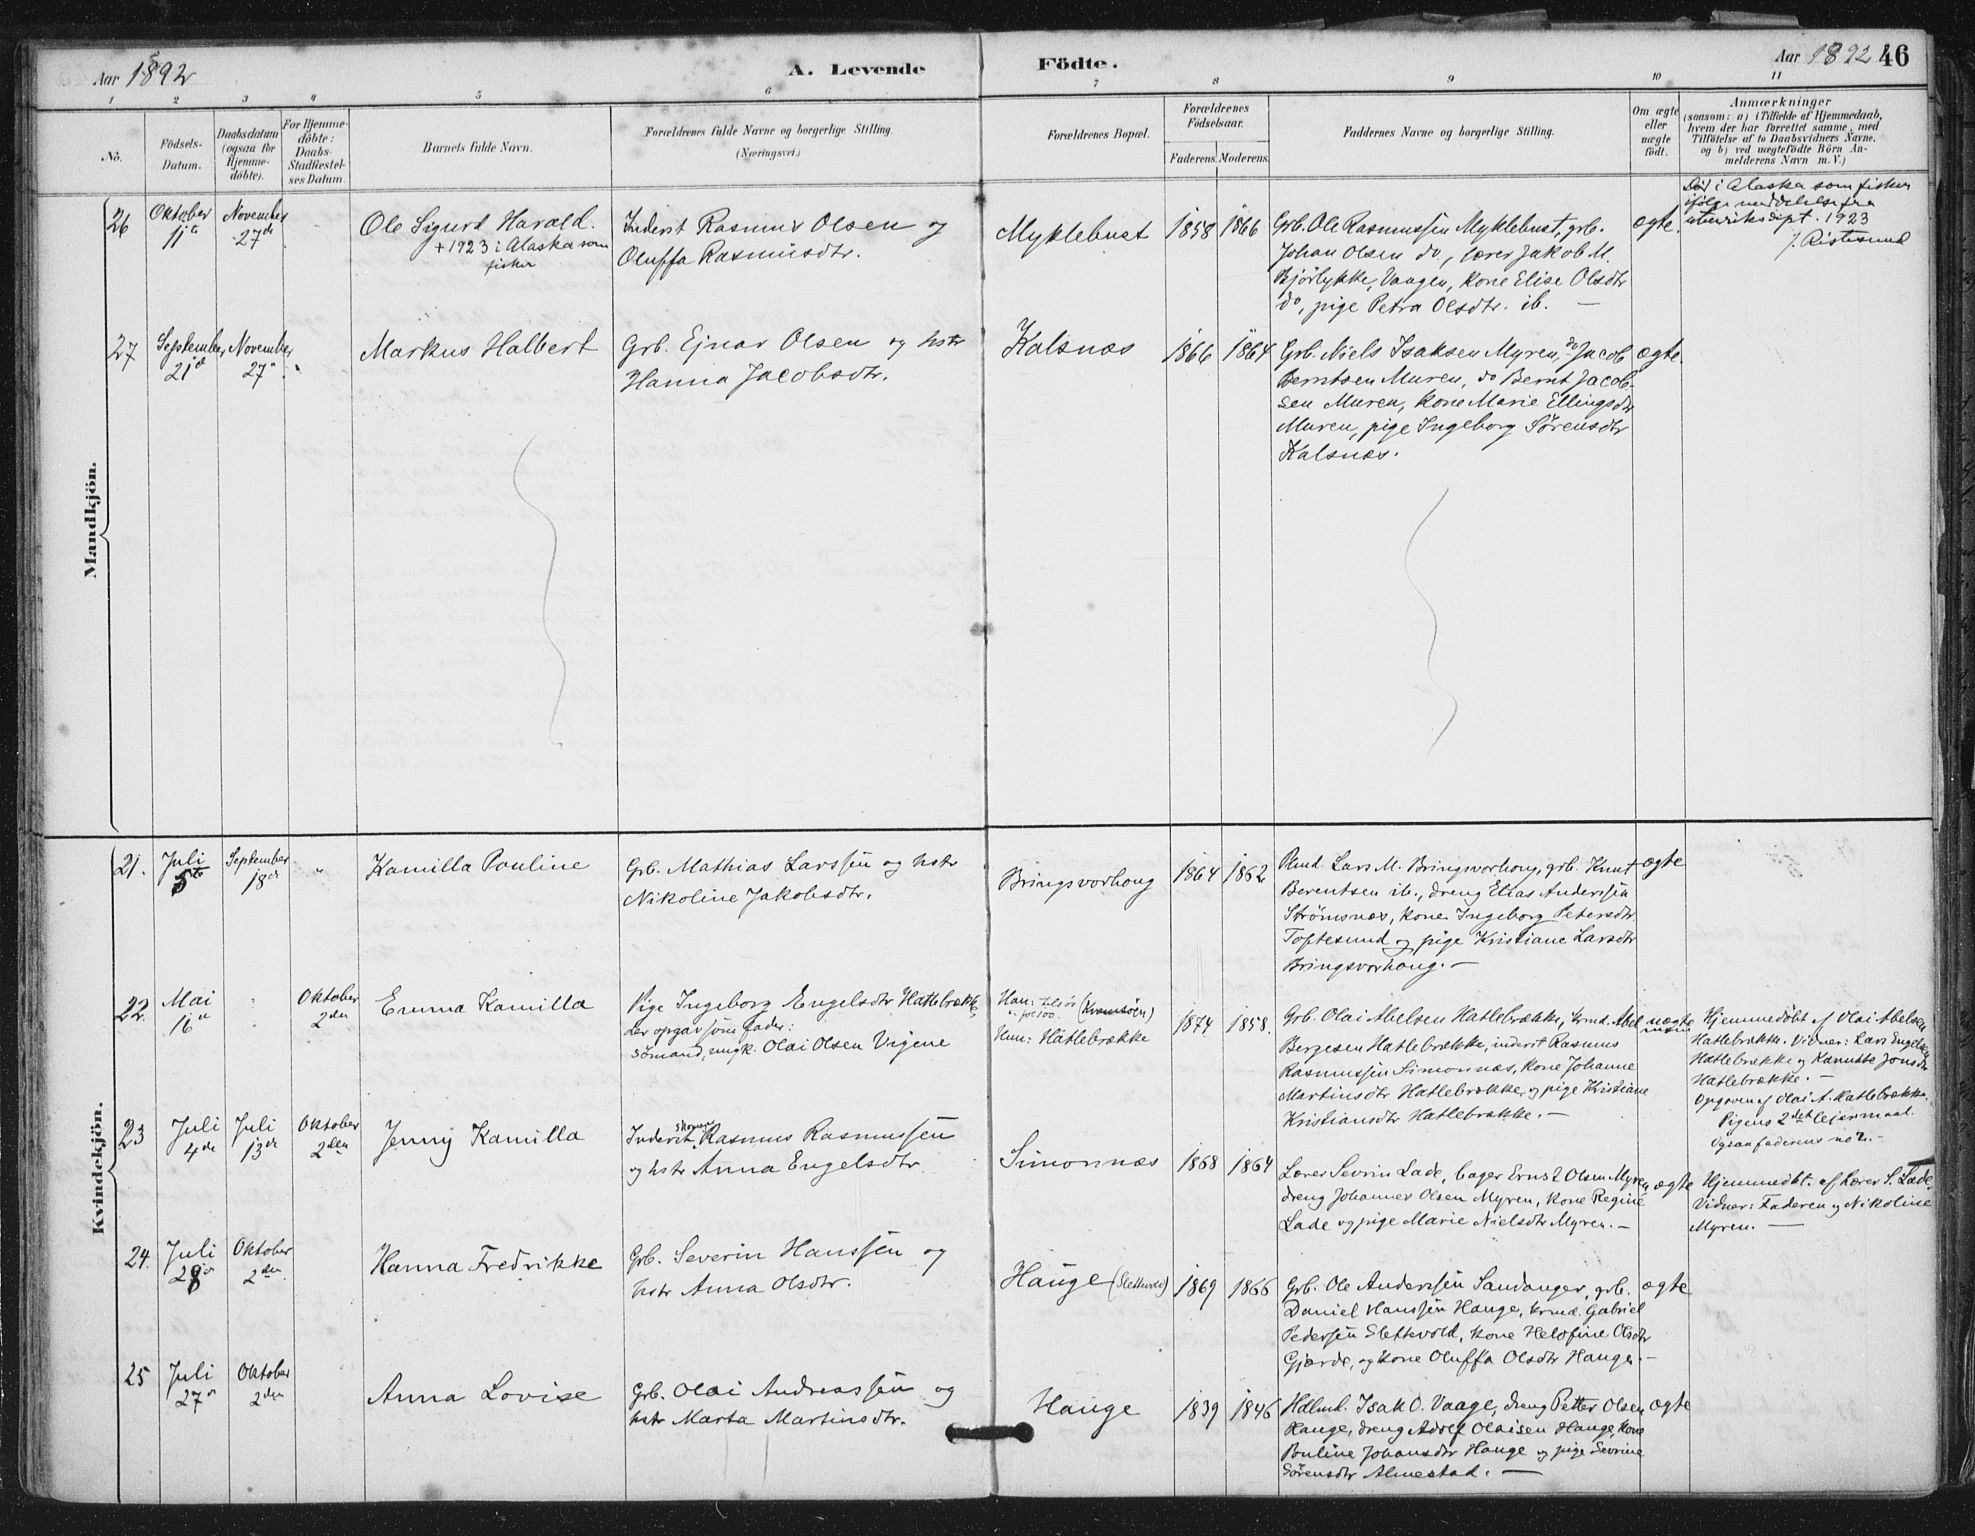 Aar 1892
A. Levende
Födte.
Aar 1892
46
1 2 3 4 5 6 7 8 9 10 11
No.
Födsels-
Datum.
Daabsdatum
(ogsaa for
Hjemme-
döbte).
For Hjemme-
döbte:
Daabs-
Stadfæstel-
ses Datum.
Barnets fulde Navn.
Forældrenes fulde Navne og borgerlige Stilling.
(Næringsvei.)
Forældrenes Bopæl.
Forældrenes
Födselsaar.
Faderens. Moderens.
Faddernes Navne og borgerlige Stilling.
Om ægte
eller
uægte
födt.
Anmærkninger
(saasom: a) i Tilfælde af Hjemmedaab,
hvem der har forrettet samme, med
Tilföielse af to Daabsvidners Navne,
og b) ved uægtefödte Börn An-
melderens Navn m. V.)
Mandkjön.
26
Oktober
11te
November
27de
Ole Sigurd Harald.
+ 1923 i Alaska som
fisker
Inderst Rasmus Olsen og
Oluffa Rasmusdtr.
Myklebust
1858
1866
Grb. Ole Rasmussen Myklebust, grb.
Johan Olsen do, lærer Jakob M.
Bjørlykke, Vaagen, kone Elise Olsdtr
do, pige Petra Olsdtr. ib. —
ægte.
Død i Alaska som fisker
ifølge meddelelse fra
utenriksdept. 1923
27
September
21de
November
27
Markus Halbert
Grb. Ejnar Olsen og hstr
Hanna Jacobsdtr.
Kalsnæs
1866
1864
Grb. Niels Isaksen Myren, do Jacob
Berntsen Muren, do Bernt Jacob-
sen Muren, kone Marie Ellingsdtr
Muren, pige Ingeborg Sørensdtr
Kalsnæs.
ægte.
Kvindekjön.
21.
Juli
5te
September
18de
Kamilla Pouline
Grb. Mathias Larssen og hstr
Nikoline Jakobsdtr.
Bringsvorhoug
1864
1862
Lars M. Bringsvorhoug, grb. Knut
Berentsen ib., dreng Elias Anderssen
Strømsnæs, kone Ingeborg Petersdtr.
Toftesund og pige Kristiane Larsdtr
Bringsvorhoug. —
ægte
22.
Mai
16
Oktober
2den
Emma Kamilla
Pige Ingeborg Engelsdtr Hatlebrække,
der opgav som fader:
sømand, ungk. Olai Olsen Vigene
Han: (Kvamsøen)
Hun: Hatlebrække
1874
1858.
Grb. Olai Abelsen Hatlebrække, krmd. Abel
Bergesen Hatlebrække, inderst Rasmus
Rasmussen Simonnæs, kone Johanne
Martinsdtr Hatlebrække og pige Kristiane
Kristiansdtr Hatlebrække. —
uægte
Hjemmedøbt af Olai Abelsen
Hatlebrække. Vidner: Lars Engelsen
Hatlebrække og Kanutte Jonsdtr
Hatlebrække. —
Opgaven af Olai A. Hatlebrække.
Pigens 2det lejermaal.
Ogsaa faderens no 2. —
23
Juli
4de
Juli
13de
Oktober
2den
Jenny Kamilla
Inderst, Rasmus Rasmussen
og hstr Anna Engelsdtr
Simonnæs
1868
1864
Lærer Sevrin Lade, bager Ernst Olsen Myren
dreng Johannes Olsen Myren, kone Regine
Lade og pige Marie Nielsdtr Myren. —
ægte
Hjemmedbt. af lærer S. Lade.
Vidner: Faderen og Nikoline
Myren. —
24.
Juli
28
Oktober
2den
Hanna Fredrikke
Grb. Severin Hanssen og
hstr Anna Olsdtr.
Hauge (Slettevold)
1869
1866
Grb. Ole Anderssen Sandanger, grb.
Daniel Hanssen Hauge, krmd. Gabriel
Pedersen Slettevold, kone Helofine Olsdtr
Gjærde, og kone Oluffa Olsdtr Hauge. —
ægte
25
Juli
27
Oktober
2den
Anna Lovise
Grb. Olai Andreassen og
hstr Marta Martinsdtr.
Hauge
1839
1846
Hdlmd. Isak O. Vaage, dreng Petter Olsen
Hauge, dreng Adolf Olaisen Hauge, kone
Pouline Johansdtr Hauge og pige Sevrine
Sørensdtr Almestad. —
ægte